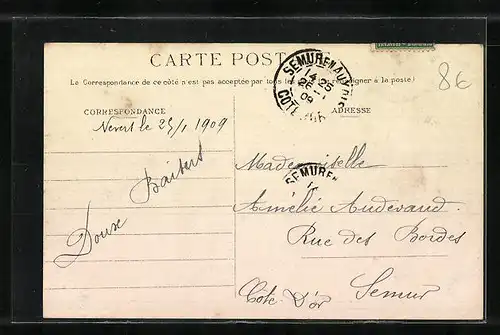 CARTE POST
La Correspondance de ce côté n'est pas acceptée par tous les
(Se renseigner à la poste)
SEMUR EN AUXOIS
COTE
8€
CORRESPONDANCE
ADRESSE
Nevers le 25/1 1909
Doux Baisers
Mademoiselle
SEMUR EN
Amélie Audevaud
Rue des Bordes
Semur
Côte D'or